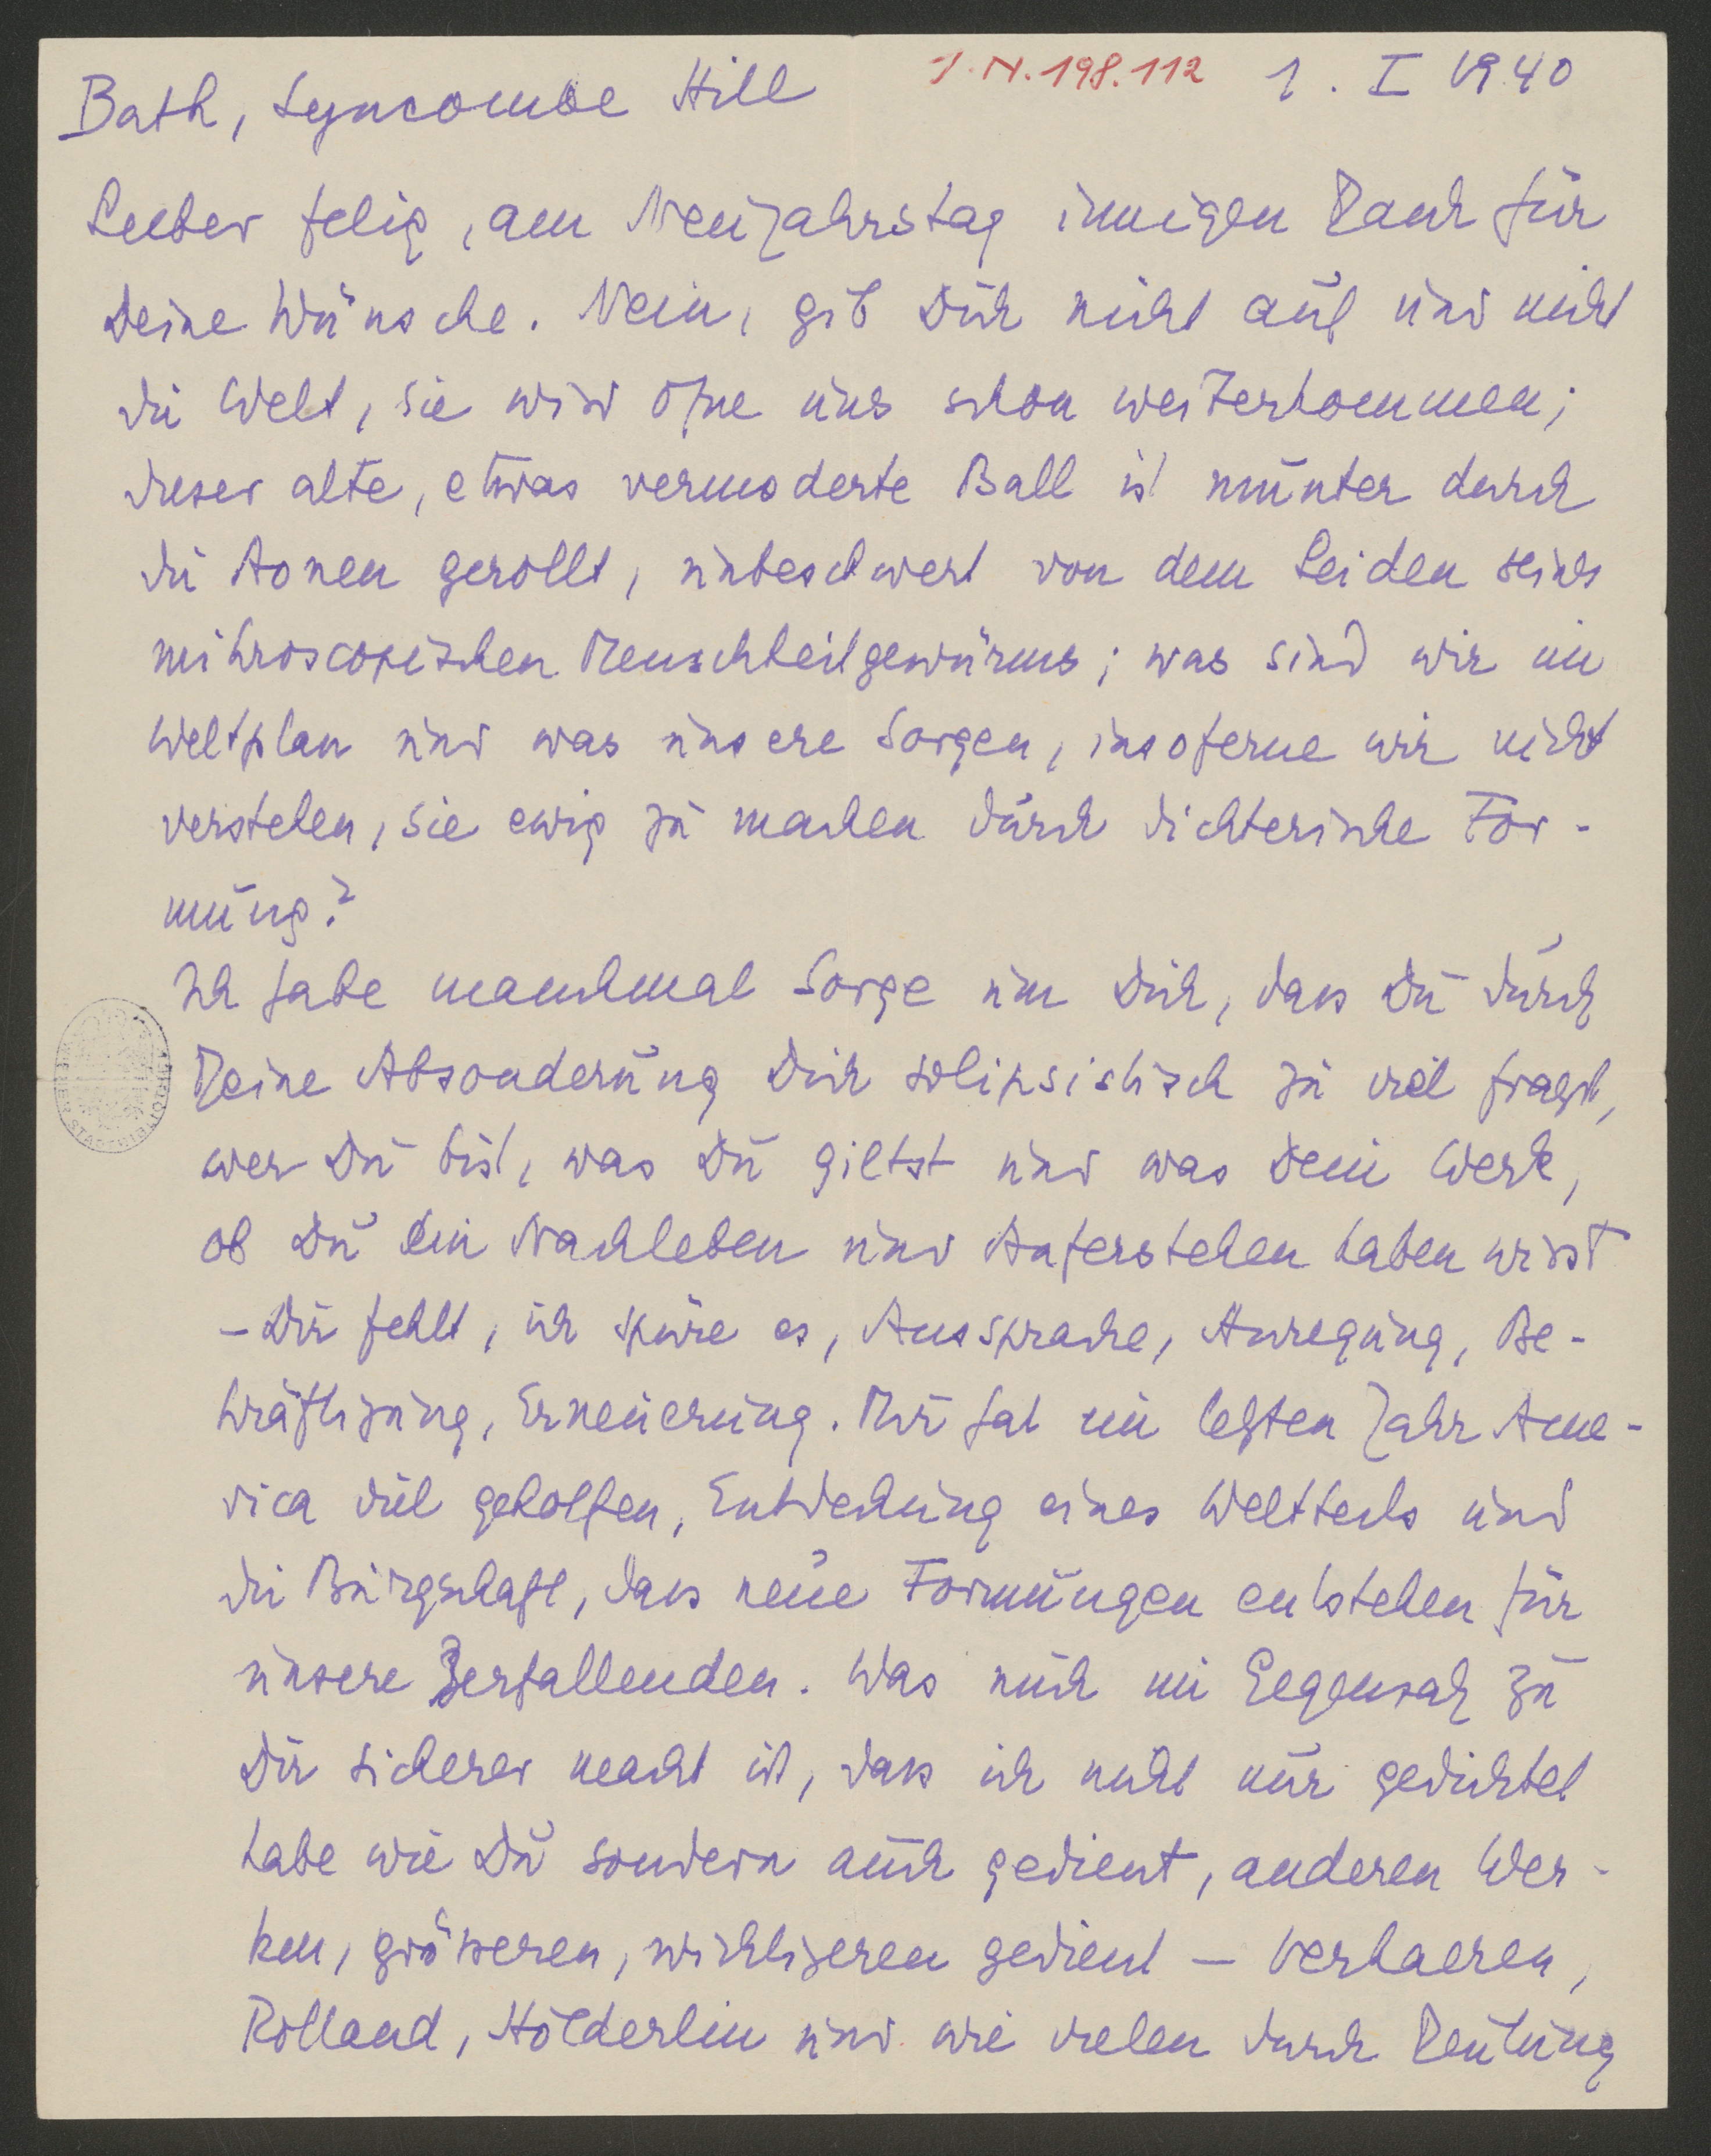 Bath, Lyncombe Hill
I. N. 198.112 1. I 1940
Lieber Felix, am Neujahrstag innigen Dank für
Deine Wünsche. Nein, gib Dich nicht auf und nicht
die Welt, sie wird ohne uns schon weiterkommen;
dieser alte, etwas vermoderte Ball ist munter durch
die Äonen gerollt, unbeschwert von dem Leiden seines
mikroscopischen Menschheitgewürms; was sind wir im
Weltplan und was unsere Sorgen, insoferne wir nicht
verstehen, sie ewig zu machen durch dichterische For-
mung?
Ich habe manchmal Sorge um Dich, dass Du durch
Deine Absonderung Dich solipsistisch zu viel fragst,
wer Du bist, was Du giltst und was Dein Werk,
ob Du ein Nachleben und Auferstehen haben wirst
– Dir fehlt, ich spüre es, Aussprache, Anregung, Be-
kräftigung, Erneuerung. Mir hat im letzten Jahr Ame-
rica viel geholfen, Entdeckung eines Weltteils und
die Bürgschaft, dass neue Formungen entstehen für
unsere Zerfallenden. Was mich im Gegensatz zu
Dir sicherer macht ist, dass ich nicht nur gedichtet
habe wie Du sondern auch gedient, anderen Wer-
ken, grösseren, wichtigeren gedient – Verhaeren,
Rolland, Hölderlin und wie vielen durch Deutung